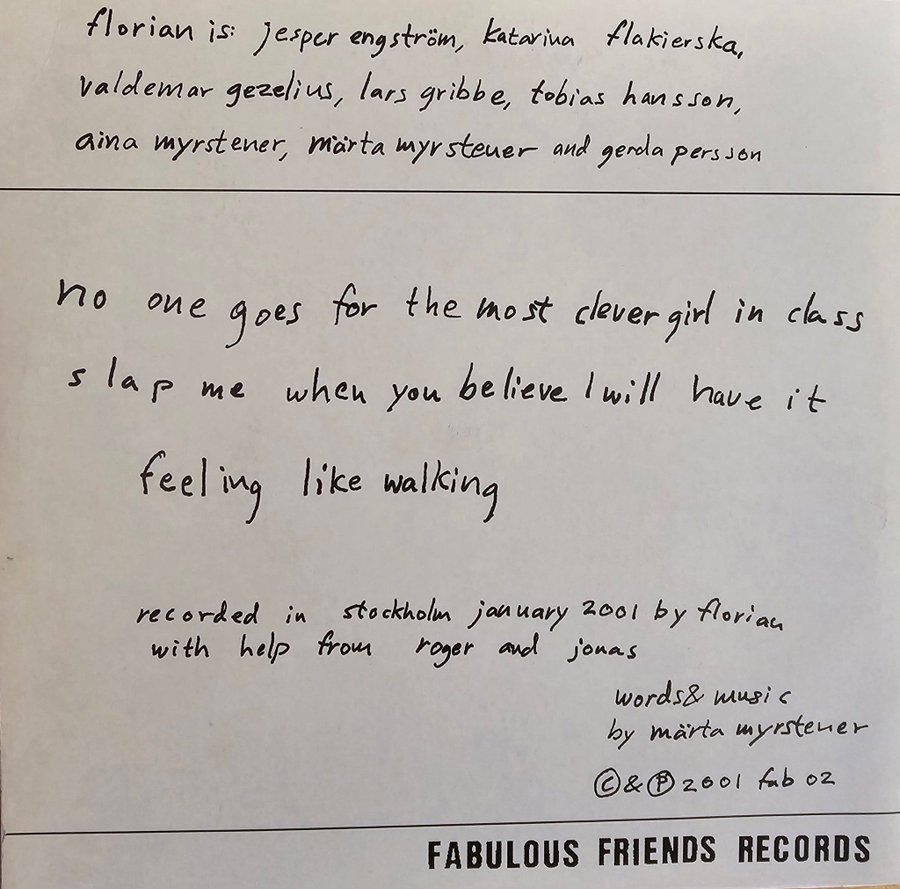 florian is: jesper engström, katarina flakierska,
valdemar gezelius, lars gribbe, tobias hansson,
aina myrstener, märta myrstener and gerda persson
no one goes for the most clever girl in class
slap me when you believe I will have it
feeling like walking
recorded in stockholm january 2001 by florian
with help from roger and jonas
words & music
by märta myrstener
© & ℗ 2001 fab 02
FABULOUS FRIENDS RECORDS